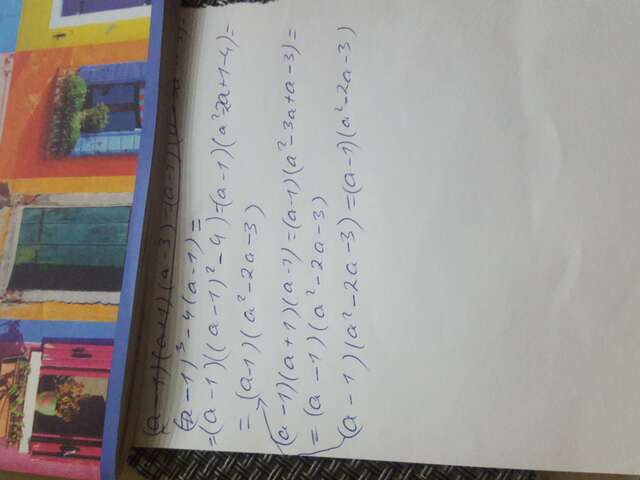 (a-1)(a+1)(a-3)=(a-1)(
(a-1)³-4(a-1)=
=(a-1)((a-1)²-4)=(a-1)(a²-2a+1-4)=
=(a-1)(a²-2a-3)
(a-1)(a+1)(a-3)=(a-1)(a²-3a+a-3)=
=(a-1)(a²-2a-3)
(a-1)(a²-2a-3)=(a-1)(a²-2a-3)